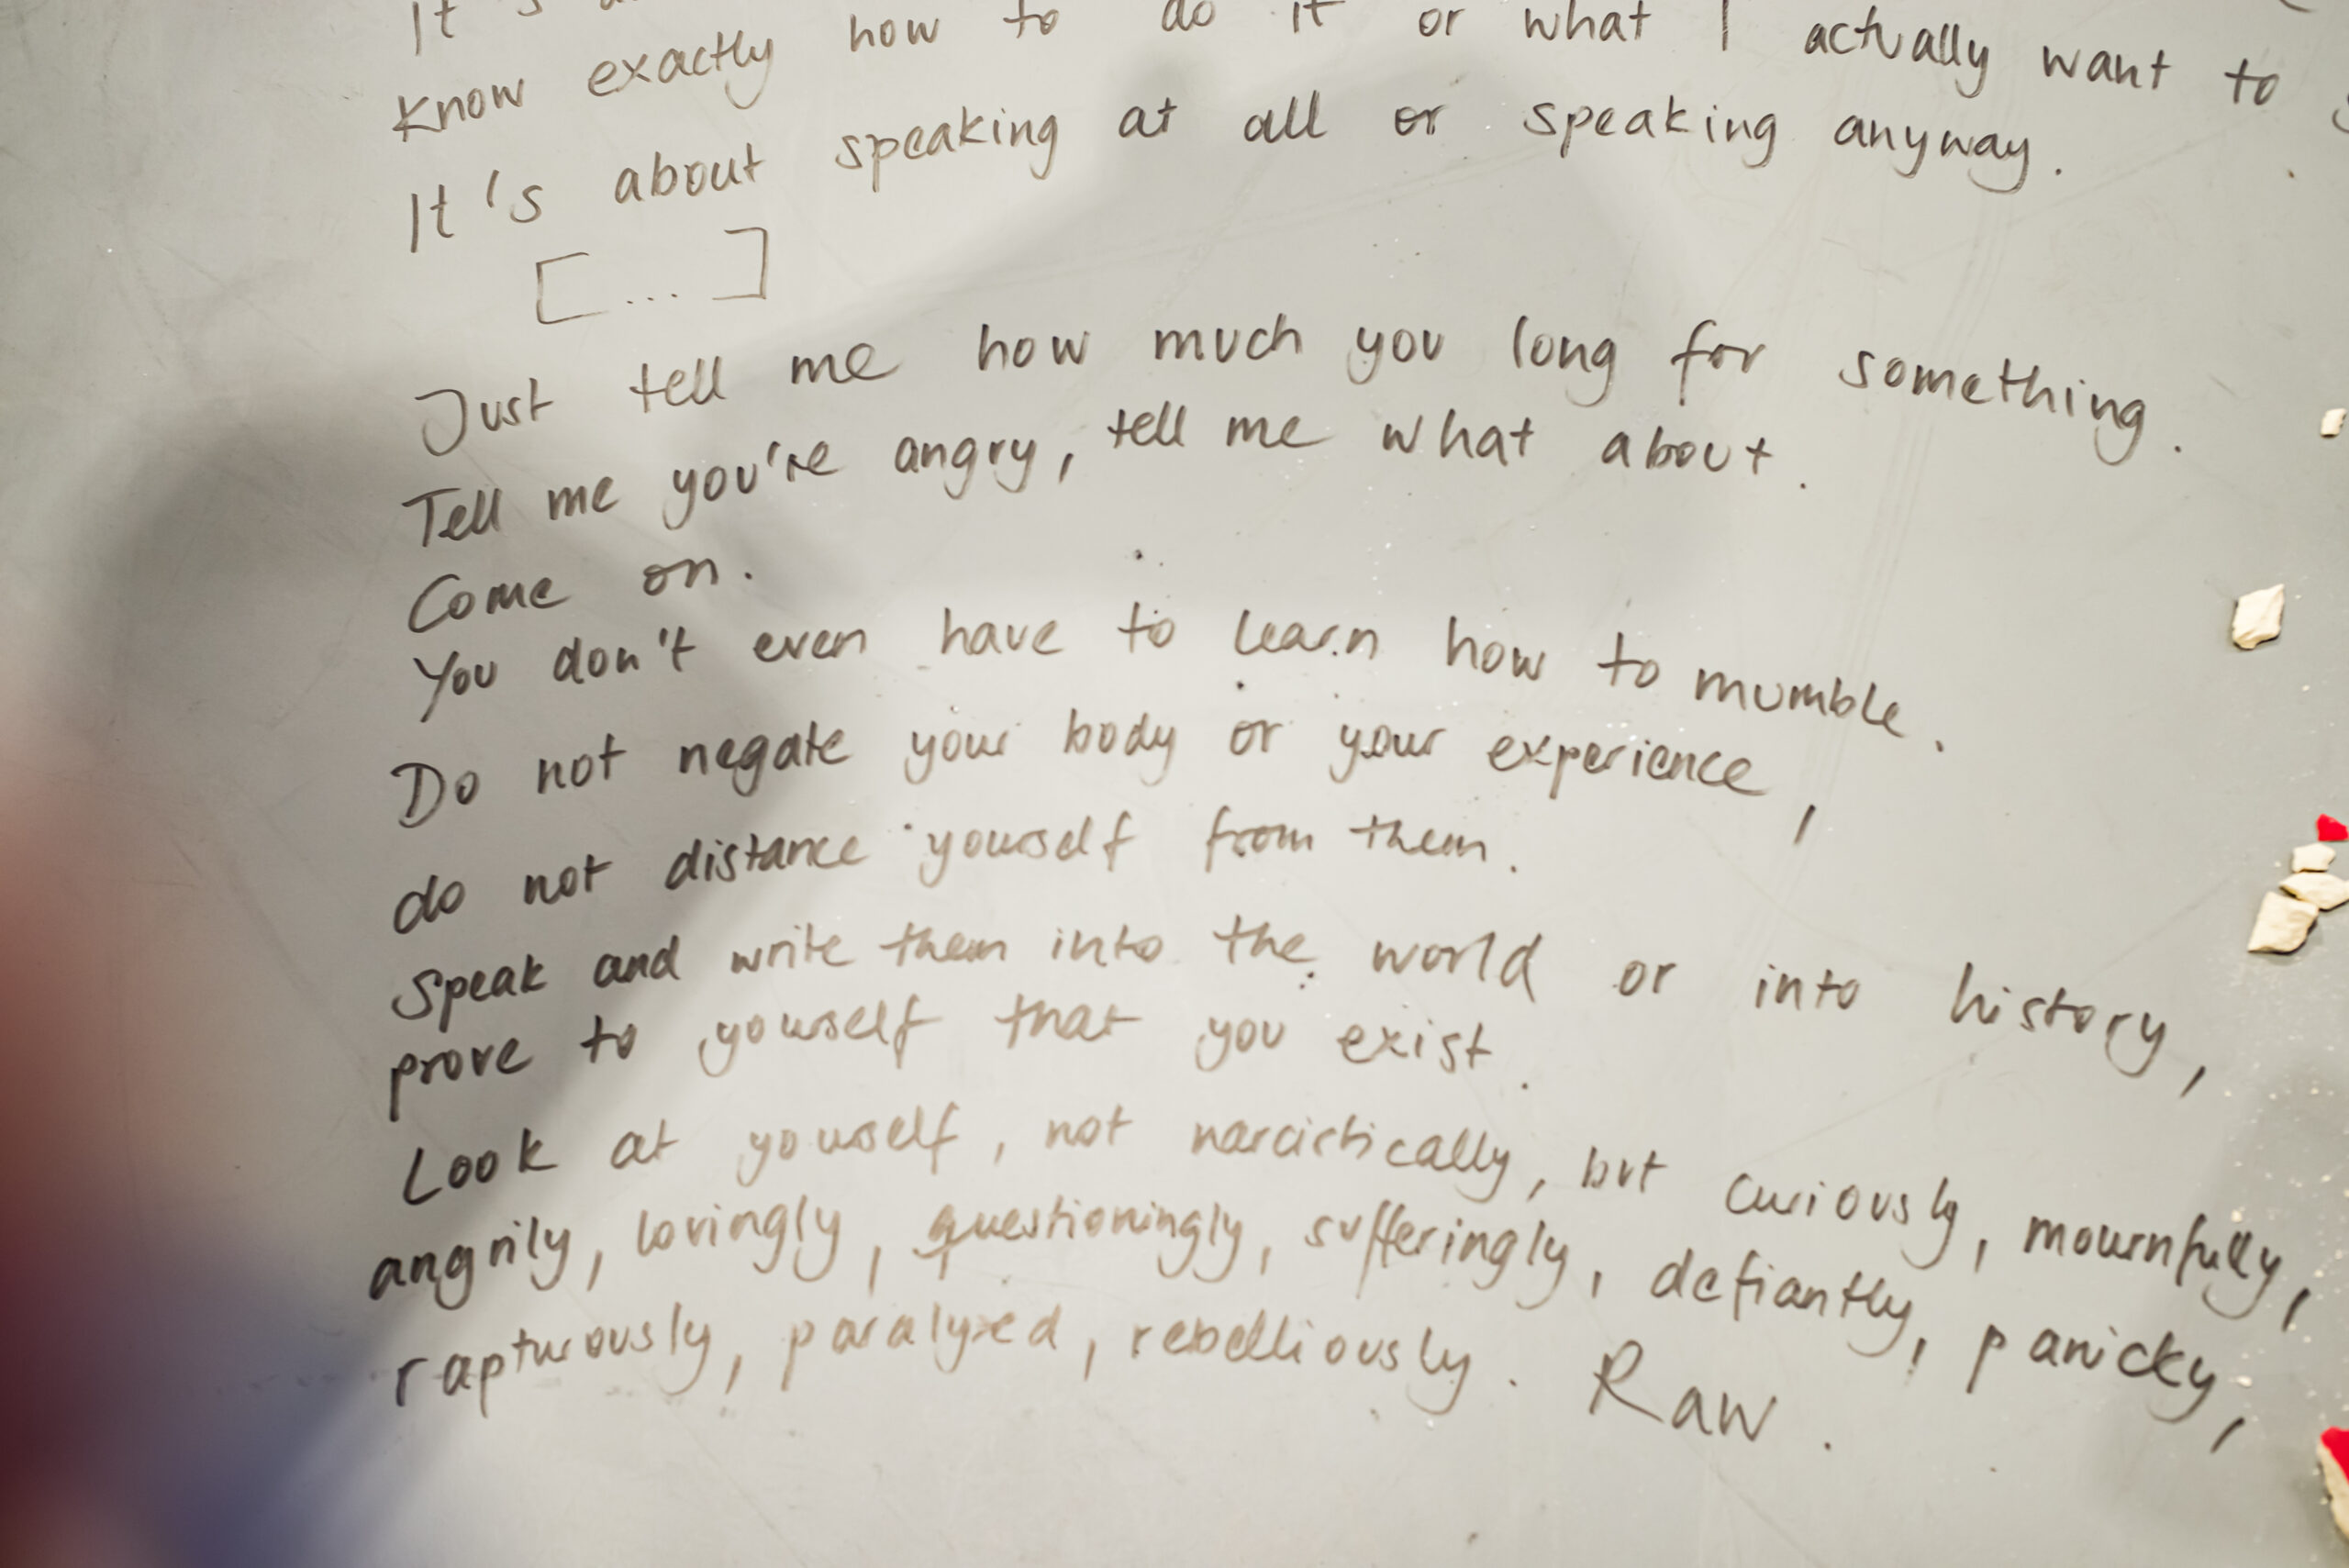 It's
know exactly how to do it or what I actually want to
It's about speaking at all or speaking anyway.
[...]
Just tell me how much you long for something.
Tell me you're angry, tell me what about.
Come on.
You don't even have to learn how to mumble.
Do not negate your body or your experience,
do not distance yourself from them.
Speak and write them into the world or into history,
prove to yourself that you exist.
Look at yourself, not narcistically, but curiously, mournfully,
angrily, lovingly, questioningly, sufferingly, defiantly, panicky,
rapturously, paralyzed, rebelliously. Raw.